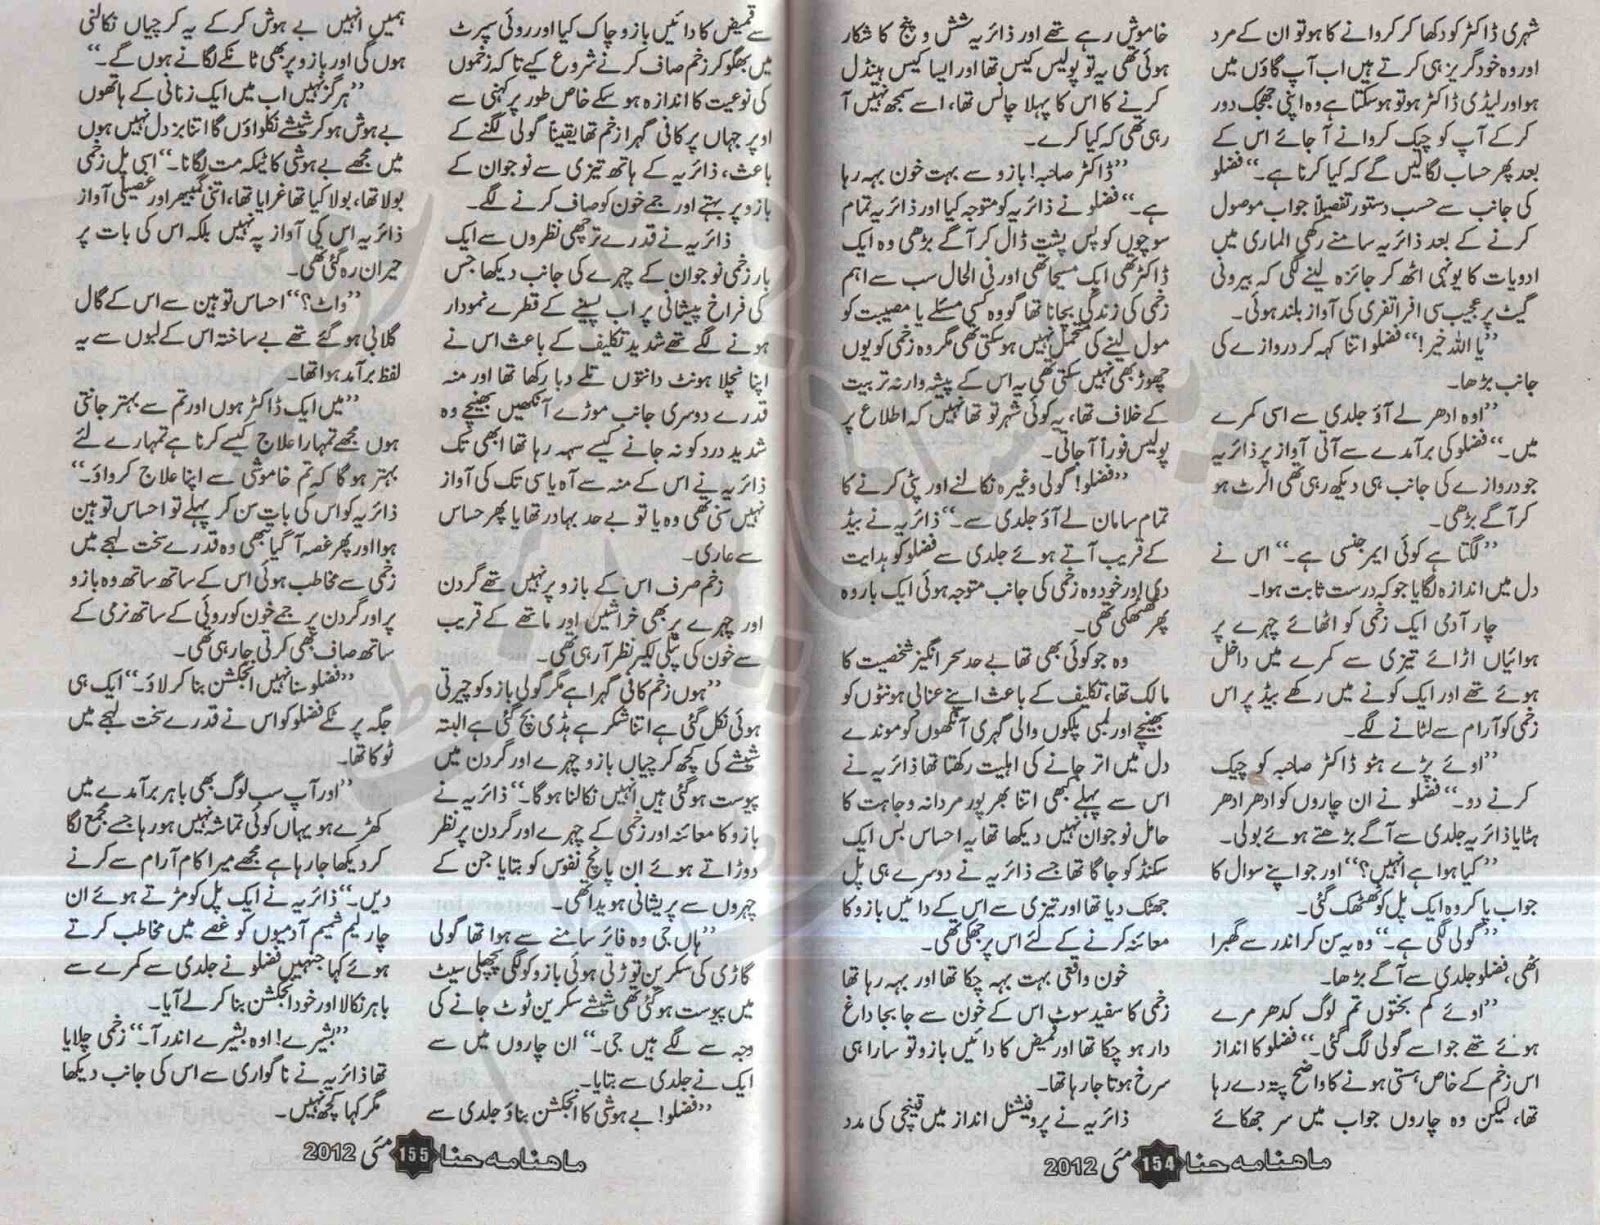 شہری ڈاکٹر کو دکھا کر کروانے کا ہو تو ان کے مرد
اور وہ خود گریز ہی کرتے ہیں اب آپ گاؤں میں
ہو اور لیڈی ڈاکٹر ہو تو ہو سکتا ہے وہ اپنی جھجک دور
کر کے آپ کو چیک کروانے آ جائے اس کے
بعد پھر حساب لگا لیں گے کہ کیا کرنا ہے۔‘‘ فضلو
کی جانب سے حسب دستور تفصیلاً جواب موصول
کرنے کے بعد ذائریہ سامنے رکھی الماری میں
ادویات کا یونہی اٹھ کر جائزہ لینے لگی کہ بیرونی
گیٹ پر عجیب سی افراتفری کی آواز بلند ہوئی۔
’’یا اللہ خیر!‘‘ فضلو اتنا کہہ کر دروازے کی
جانب بڑھا۔
’’اوہ ادھر لے آؤ جلدی سے اسی کمرے
میں۔‘‘ فضلو کی برآمدے سے آتی آواز پر ذائریہ
جو دروازے کی جانب ہی دیکھ رہی تھی الرٹ ہو
کر آگے بڑھی۔
’’لگتا ہے کوئی ایمرجنسی ہے۔‘‘ اس نے
دل میں اندازہ لگایا جو کہ درست ثابت ہوا۔
چار آدمی ایک زخمی کو اٹھائے چہرے پر
ہوائیاں اڑائے تیزی سے کمرے میں داخل
ہوئے تھے اور ایک کونے میں رکھے بیڈ پر اس
زخمی کو آرام سے لٹانے لگے۔
’’اوئے پڑے ہٹو ڈاکٹر صاحبہ کو چیک
کرنے دو۔‘‘ فضلو نے ان چاروں کو ادھر ادھر
ہٹایا ذائریہ جلدی سے آگے بڑھتے ہوئے بولی۔
’’کیا ہوا ہے انہیں؟‘‘ اور جو اپنے سوال کا
جواب پا کر وہ ایک پل کو ٹھٹھک گئی۔
’’گولی لگی ہے۔‘‘ وہ یہ سن کر اندر سے گھبرا
اٹھی، فضلو جلدی سے آگے بڑھا۔
’’اوئے کم بختوں تم لوگ کدھر مرے
ہوئے تھے جو اسے گولی لگ گئی۔‘‘ فضلو کا انداز
اس زخم کے خاص ہستی ہونے کا واضح پتہ دے رہا
تھا، لیکن وہ چاروں جواب میں سر جھکائے
خاموش رہے تھے اور ذائریہ شش و پنج کا شکار
ہوئی تھی یہ تو پولیس کیس تھا اور ایسا کیس ہینڈل
کرنے کا اس کا پہلا چانس تھا، اسے سمجھ نہیں آ
رہی تھی کہ کیا کرے۔
’’ڈاکٹر صاحبہ! بازو سے بہت خون بہہ رہا
ہے۔‘‘ فضلو نے ذائریہ کو متوجہ کیا اور ذائریہ تمام
سوچوں کو پس پشت ڈال کر آگے بڑھی وہ ایک
ڈاکٹر تھی ایک مسیحا تھی اور فی الحال سب سے اہم
زخمی کی زندگی بچانا تھا گو وہ کسی مسئلے یا مصیبت کو
مول لینے کی متحمل نہیں ہو سکتی تھی مگر وہ زخمی کو یوں
چھوڑ بھی نہیں سکتی تھی یہ اس کے پیشہ وارنہ تربیت
کے خلاف تھا، یہ کوئی شہر تو تھا نہیں کہ اطلاع پر
پولیس فوراً آ جاتی۔
’’فضلو! گولی وغیرہ نکالنے اور پٹی کرنے کا
تمام سامان لے آؤ جلدی سے۔‘‘ ذائریہ نے بیڈ
کے قریب آتے ہوئے جلدی سے فضلو کو ہدایت
دی اور خود وہ زخمی کی جانب متوجہ ہوئی ایک بار وہ
پھر ٹھٹھکی تھی۔
وہ جو کوئی بھی تھا بے حد سحر انگیز شخصیت کا
مالک تھا، تکلیف کے باعث اپنے عنابی ہونٹوں کو
بھینچے اور لمبی پلکوں والی گہری آنکھوں کو موندے
دل میں اتر جانے کی اہلیت رکھتا تھا ذائریہ نے
اس سے پہلے کبھی اتنا بھرپور مردانہ وجاہت کا
حامل نوجوان نہیں دیکھا تھا یہ احساس بس ایک
سکنڈ کو جاگا تھا جسے ذائریہ نے دوسرے ہی پل
جھٹک دیا تھا اور تیزی سے اس کے دائیں بازو کا
معائنہ کرنے کے لئے اس پر جھکی تھی۔
خون واقعی بہت بہہ چکا تھا اور بہہ رہا تھا
زخمی کا سفید سوٹ اس کے خون سے جا بجا داغ
دار ہو چکا تھا اور قمیض کا دائیں بازو تو سارا ہی
سرخ ہوتا جا رہا تھا۔
ذائریہ نے پروفیشنل انداز میں قینچی کی مدد
ماہنامہ حنا 154 مئی 2012
سے قمیض کا دائیں بازو چاک کیا اور روئی سپرٹ
میں بھگو کر زخم صاف کرنے شروع کیے تا کہ زخموں
کی نوعیت کا اندازہ ہو سکے خاص طور پر کہنی سے
اوپر جہاں پر کافی گہرا زخم تھا یقیناً گولی لگنے کے
باعث، ذائریہ کے ہاتھ تیزی سے نوجوان کے
بازو پر بہتے اور جمے خون کو صاف کرنے لگے۔
ذائریہ نے قدرے ترچھی نظروں سے ایک
بار زخمی نوجوان کے چہرے کی جانب دیکھا جس
کی فراخ پیشانی پر اب پسینے کے قطرے نمودار
ہونے لگے تھے شدید تکلیف کے باعث اس نے
اپنا نچلا ہونٹ دانتوں تلے دبا رکھا تھا اور منہ
قدرے دوسری جانب موڑے آنکھیں بھینچے وہ
شدید درد کو نہ جانے کیسے سہہ رہا تھا ابھی تک
ذائریہ نے اس کے منہ سے آہ یا سی تک کی آواز
نہیں سنی تھی وہ یا تو بے حد بہادر تھا یا پھر حساس
سے عاری۔
زخم صرف اس کے بازو پر نہیں تھے گردن
اور چہرے پر بھی خراشیں اور ماتھے کے قریب
سے خون کی پتلی لکیر نظر آ رہی تھی۔
’’ہوں زخم کافی گہرا ہے مگر گولی بازو کو چیرتی
ہوئی نکل گئی ہے اتنا شکر ہے ہڈی بچ گئی ہے البتہ
شیشے کی کچھ کرچیاں بازو چہرے اور گردن میں
پیوست ہو گئی ہیں انہیں نکالنا ہوگا۔‘‘ ذائریہ نے
بازو کا معائنہ اور زخمی کے چہرے اور گردن پر نظر
دوڑاتے ہوئے ان پانچ نفوس کو بتایا جن کے
چہروں سے پریشانی ہویدا تھی۔
’’ہاں جی وہ فائر سامنے سے ہوا تھا گولی
گاڑی کی سکرین توڑتی ہوئی بازو کو لگی پچھلی سیٹ
میں پیوست ہو گئی تھی شیشے سکرین ٹوٹ جانے کی
وجہ سے لگے ہیں جی۔‘‘ ان چاروں میں سے
ایک نے جلدی سے بتایا۔
’’فضلو! بے ہوشی کا انجکشن بناؤ جلدی سے
ہمیں انہیں بے ہوش کر کے یہ کرچیاں نکالنی
ہوں گی اور بازو پر بھی ٹانکے لگانے ہوں گے۔‘‘
’’ہرگز نہیں اب میں ایک زنانی کے ہاتھوں
بے ہوش ہو کر شیشے نکلواؤں گا اتنا بزدل نہیں ہوں
میں مجھے بے ہوشی کا ٹیکہ مت لگانا۔‘‘ اسی پل زخمی
بولا تھا، بولا کیا تھا غرایا تھا، اتنی گمبھیر اور غصیلی آواز
ذائریہ اس کی آواز پہ نہیں بلکہ اس کی بات پر
حیران رہ گئی تھی۔
’’واٹ؟‘‘ احساس توہین سے اس کے گال
گلابی ہو گئے تھے بے ساختہ اس کے لبوں سے یہ
لفظ برآمد ہوا تھا۔
’’میں ایک ڈاکٹر ہوں اور تم سے بہتر جانتی
ہوں مجھے تمہارا علاج کیسے کرنا ہے تمہارے لئے
بہتر ہو گا کہ تم خاموشی سے اپنا علاج کرواؤ۔‘‘
ذائریہ کو اس کی بات سن کر پہلے تو احساس توہین
ہوا اور پھر غصہ آ گیا بھی وہ قدرے سخت لہجے میں
زخمی سے مخاطب ہوئی اس کے ساتھ ساتھ وہ بازو
پر اور گردن پر جمے خون کو روئی کے ساتھ نرمی کے
ساتھ صاف بھی کرتی جا رہی تھی۔
’’فضلو سنا نہیں انجکشن بنا کر لاؤ۔‘‘ ایک ہی
جگہ پر ٹکے فضلو کو اس نے قدرے سخت لہجے میں
ٹوکا تھا۔
’’اور آپ سب لوگ بھی باہر برآمدے میں
کھڑے ہو یہاں کوئی تماشہ نہیں ہو رہا جسے مجمع لگا
کر دیکھا جا رہا ہے مجھے میرا کام آرام سے کرنے
دیں۔‘‘ ذائریہ نے ایک پل کو مڑتے ہوئے ان
چار لحیم شمیم آدمیوں کو غصے میں مخاطب کرتے
ہوئے کہا جنہیں فضلو نے جلدی سے کمرے سے
باہر نکالا اور خود انجکشن بنا کر لے آیا۔
’’بشیرے! اوہ بشیرے اندر آ۔‘‘ زخمی چلایا
تھا ذائریہ نے ناگواری سے اس کی جانب دیکھا
مگر کہا کچھ نہیں۔
ماہنامہ حنا 155 مئی 2012